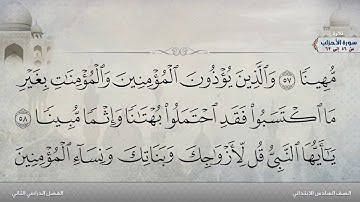 تلاوة
سورة الأحزاب
مُّهِينًا ٥٧ وَالَّذِينَ يُؤْذُونَ الْمُؤْمِنِينَ وَالْمُؤْمِنَاتِ بِغَيْرِ
مَا اكْتَسَبُوا فَقَدِ احْتَمَلُوا بُهْتَانًا وَإِثْمًا مُّبِينًا ٥٨
يَا أَيُّهَا النَّبِيُّ قُل لِّأَزْوَاجِكَ وَبَنَاتِكَ وَنِسَاءِ الْمُؤْمِنِينَ
الصف السادس الابتدائي
الفصل الدراسي الثاني